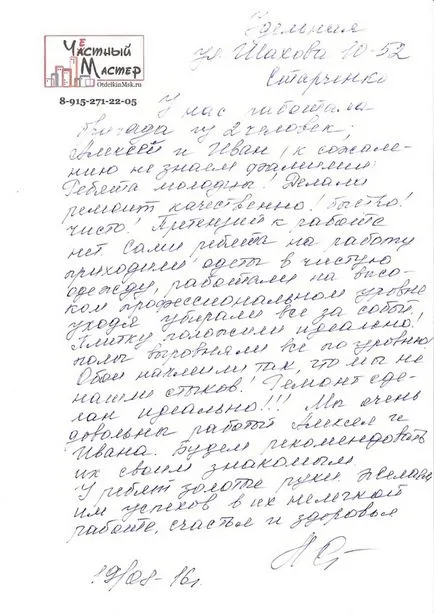 Честный
Мастер
OtdelkinMsk.ru
8-915-271-22-05
Удельная
ул. Шахова 10-52
Старченко
У нас работала
бригада из 2 человек,
Алексей и Иван (к сожале-
нию не знаем фамилии)
Ребята молодцы! Делали
ремонт качественно! Быстро!
Чисто! Претензий к работе
нет. Сами ребята на работу
приходили одеты в чистую
одежду, работали на высо-
ком профессиональном уровне
уходя убирали все за собой.
Плитку положили идеально!
полы выровняли все по уровню!
Обои наклеили так, что мы не
нашли стыков! Ремонт сде-
лан идеально!!! Мы очень
довольны работой Алексея и
Ивана. Будем рекомендовать
их своим знакомым.
У ребят золотые руки. Желаем
им успехов в их нелегкой
работе, счастья и здоровья
19/08-16г.